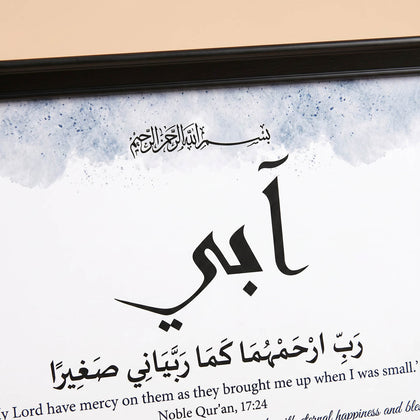 بسم الله الرحمن الرحيم
أبي
رَبِّ ارْحَمْهُمَا كَمَا رَبَّيَانِي صَغِيرًا
Lord have mercy on them as they brought me up when I was small.'
Noble Qur'an, 17:24
eternal happiness and